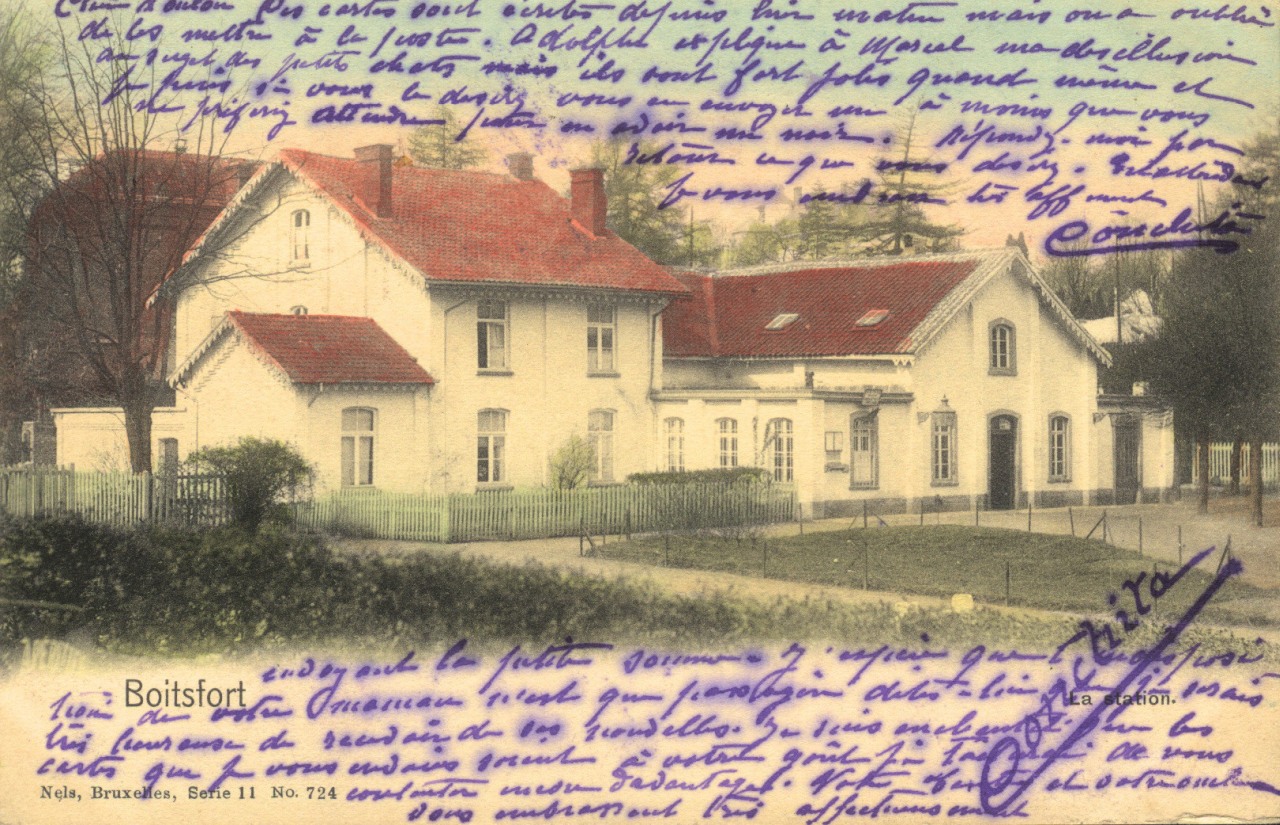 Cher Les cartes sont écrites depuis hier matin mais on a oublié
de les mettre à la poste. Adolphe explique à Marcel ma désillusion
au sujet des petits chats mais ils sont fort jolis quand même et
je puis si vous le desirez vous en envoyer un à moins que vous
ne préfériez attendre pour en avoir un noir. Répondez-moi par
retour ce que vous desirez. En attendant
je vous embrasse très affectment
Conchita
envoyant la petite somme. J'espère que l'indisposi
tion de votre maman n'est que passagère dites-lui que je serais
très heureuse de recevoir de ses nouvelles. Je suis enchantée que les
cartes que je vous envoies soient à votre goût je de vous
contenter encore davantage. Votre et votre
vous embrassent très affectueusement
Conchita
Boitsfort
La station.
Nels, Bruxelles, Serie 11 No. 724